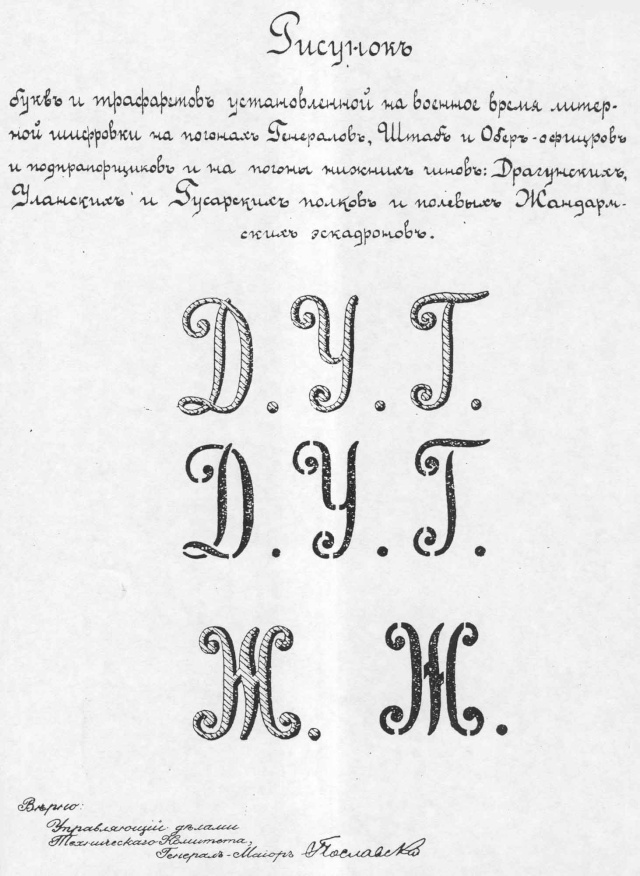 Рисунокъ
буквъ и трафаретовъ установленной на военное время литер-
ной шифровки на погонахъ Генераловъ, Штабъ и Оберъ-офицровъ
и подпрапорщиковъ и на погоны нижнихъ чиновъ: Драгунскихъ,
Уланскихъ и Гусарскихъ полковъ и полевыхъ Жандарм-
скихъ эскадроновъ.
Д. У. Г.
Д. У. Г.
Ж. Ж.
Вѣрно:
Управляющій дѣлами
Техническаго Комитета,
Генералъ-Маіоръ